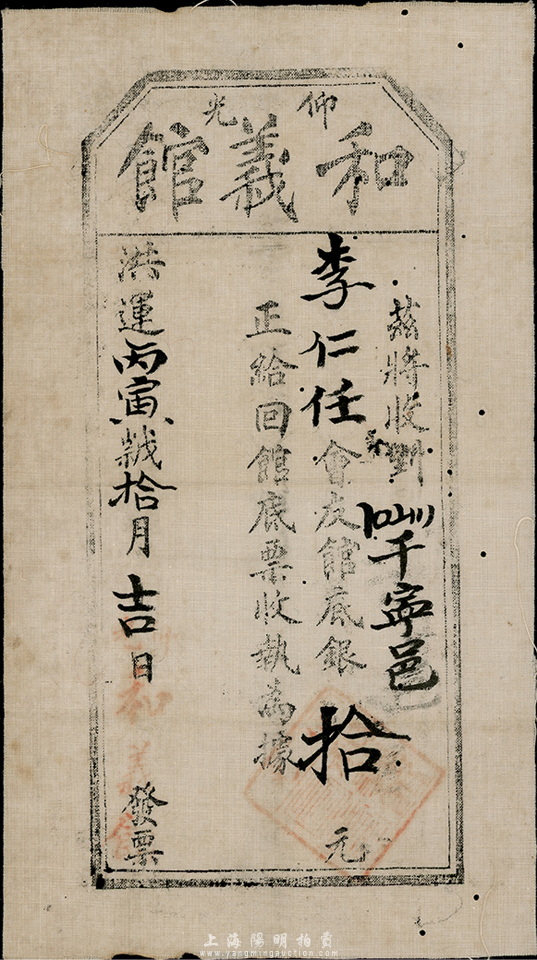 仰光
和義館
茲將收到
千寧邑
李仁任會友館底銀拾元
正給回館底票收執為據
洪運丙寅拾月吉日
發票
和義館
上海陽明拍賣
www.yangmingauction.com